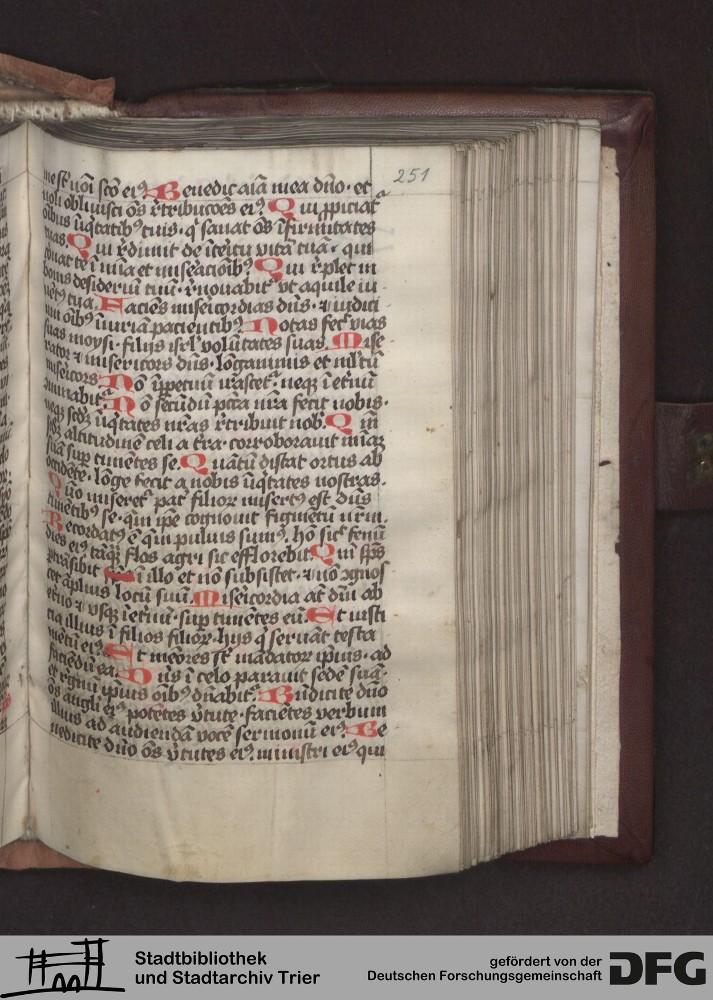 251
me sc̄o eiꝰ Benedic aīa mea dn̄o · et
noli obliuisci oēs r̄tribucōes eiꝰ Qui ꝓpiciat᷑
oībus īiq̄tatibꝰ tuis · q̄ sanat oēs īfirmitates
tuas Qui r̄dimit de īteritu vitā tuā · qui
conat te ī mīa et miseraciōibꝰ Qui r̄plet in
bonis desideriū tuū · r̄nouabit᷑ vt aquile iu
uētꝰ tua Faciēs misericordias dn̄s · ⁊ iudici
um oībꝰ iniuriā pacientibꝰ Notas fecit vias
suas moysi · filijs isrl̄ volūtates suas Mise
rator ⁊ misericors dn̄s · lōganimis et mltū
misericors Nō īꝑpetuū irascet᷑ · neqꝫ īet̄nū
ꝯminabit᷑ Nō secūdū pcc̄a nr̄a fecit nobis ·
neqꝫ scd̄ꝫ īiq̄tates nr̄as r̄tribuit nob̄ Qm̄
scd̄ꝫ altitudinē celi a t̄ra · corroborauit mīaꝫ
suā suꝑ timētes se Quātū distat ortus ab
occidēte · lōge fecit a nobis īiq̄tates nostras ·
Quō miseret᷑ pat̄ filioꝝ misertꝰ est dn̄s
timētibꝰ se · qm̄ ipē cognouit figmētū nr̄m ·
Recordatꝰ ē qm̄ puluis sumꝰ · hō sic̄ fenū
dies eiꝰ tāꝗ flos agri sic efflorebit Qm̄ sp̄s
ꝑtrāsibit ī illo et nō subsistet · ⁊ nō ꝯgnos
cet āplius locū suū Misericordia at̄ dn̄i ab
et̄no ⁊ vsqꝫ īet̄nū · suꝑ timētes eū Et iusti
cia illius ī filios filioꝝ · hijs q̄ seruāt testa
mētū eiꝰ Et mēores st̄ mādatoꝝ ip̄ius · ad
faciēdū ea Dn̄s ī celo parauit sedē suā ·
et r̄gnū ip̄ius oībꝰ dn̄abit᷑ Bn̄dicite dn̄o
oēs āgli eiꝰ potētes v̄tute · faciētes verbum
illius ad audiendā vocē sermonū eiꝰ Be
nedicite dn̄o oēs v̄tutes eiꝰ ministri eiꝰ qui
Stadtbibliothek
und Stadtarchiv Trier
gefördert von der
Deutschen Forschungsgemeinschaft
DFG